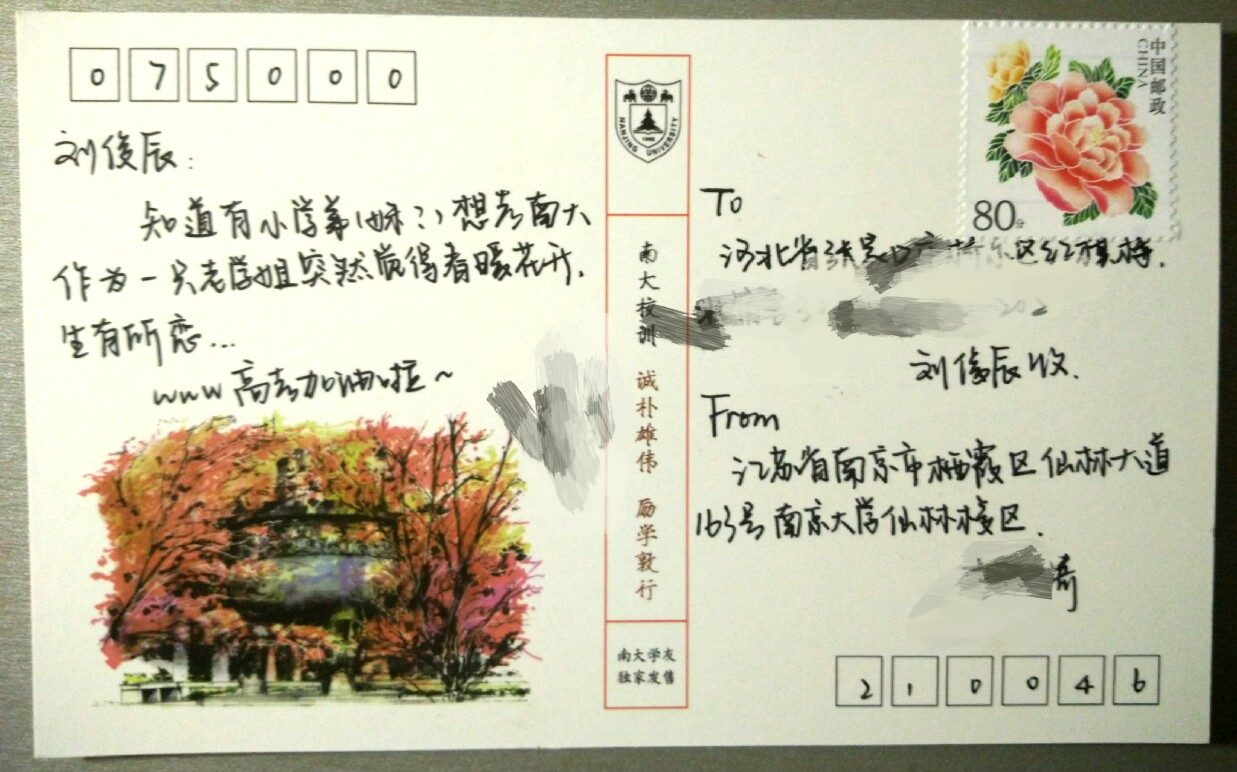 075000
刘俊辰：
知道有小学弟(妹?)想考南大
作为一只老学姐突然觉得春暖花开，
生有所恋...
www高考加油啦~
NANJING UNIVERSITY
1902
南大校训 诚朴雄伟 励学敦行
南大学友
独家发售
中国邮政
CHINA
80分
To
河北省张家口市桥东区红旗楼
202
刘俊辰收.
From
江苏省南京市栖霞区仙林大道
163号南京大学仙林校区.
210046